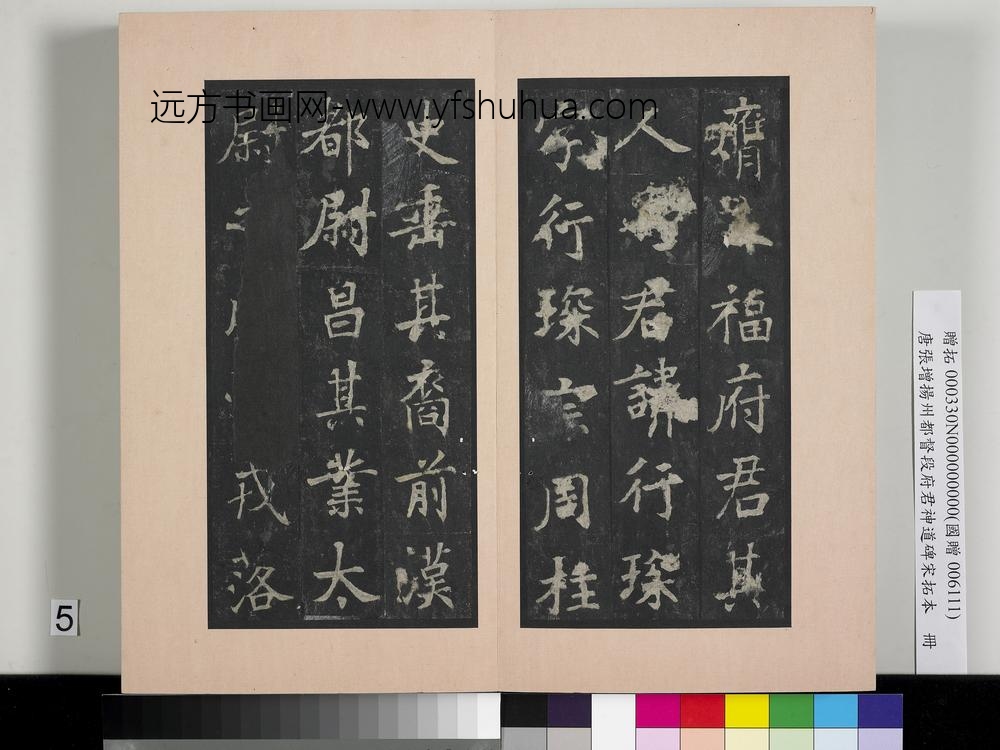 远方书画网 www.yfshuhua.com
福府君其
人君諱行琛
字行琛周桂
史垂其裔前漢
都尉昌其業太
尉戎落
贈拓 000330N000000000(國贈 006111)
唐張增揚州都督段府君神道碑宋拓本 冊
5